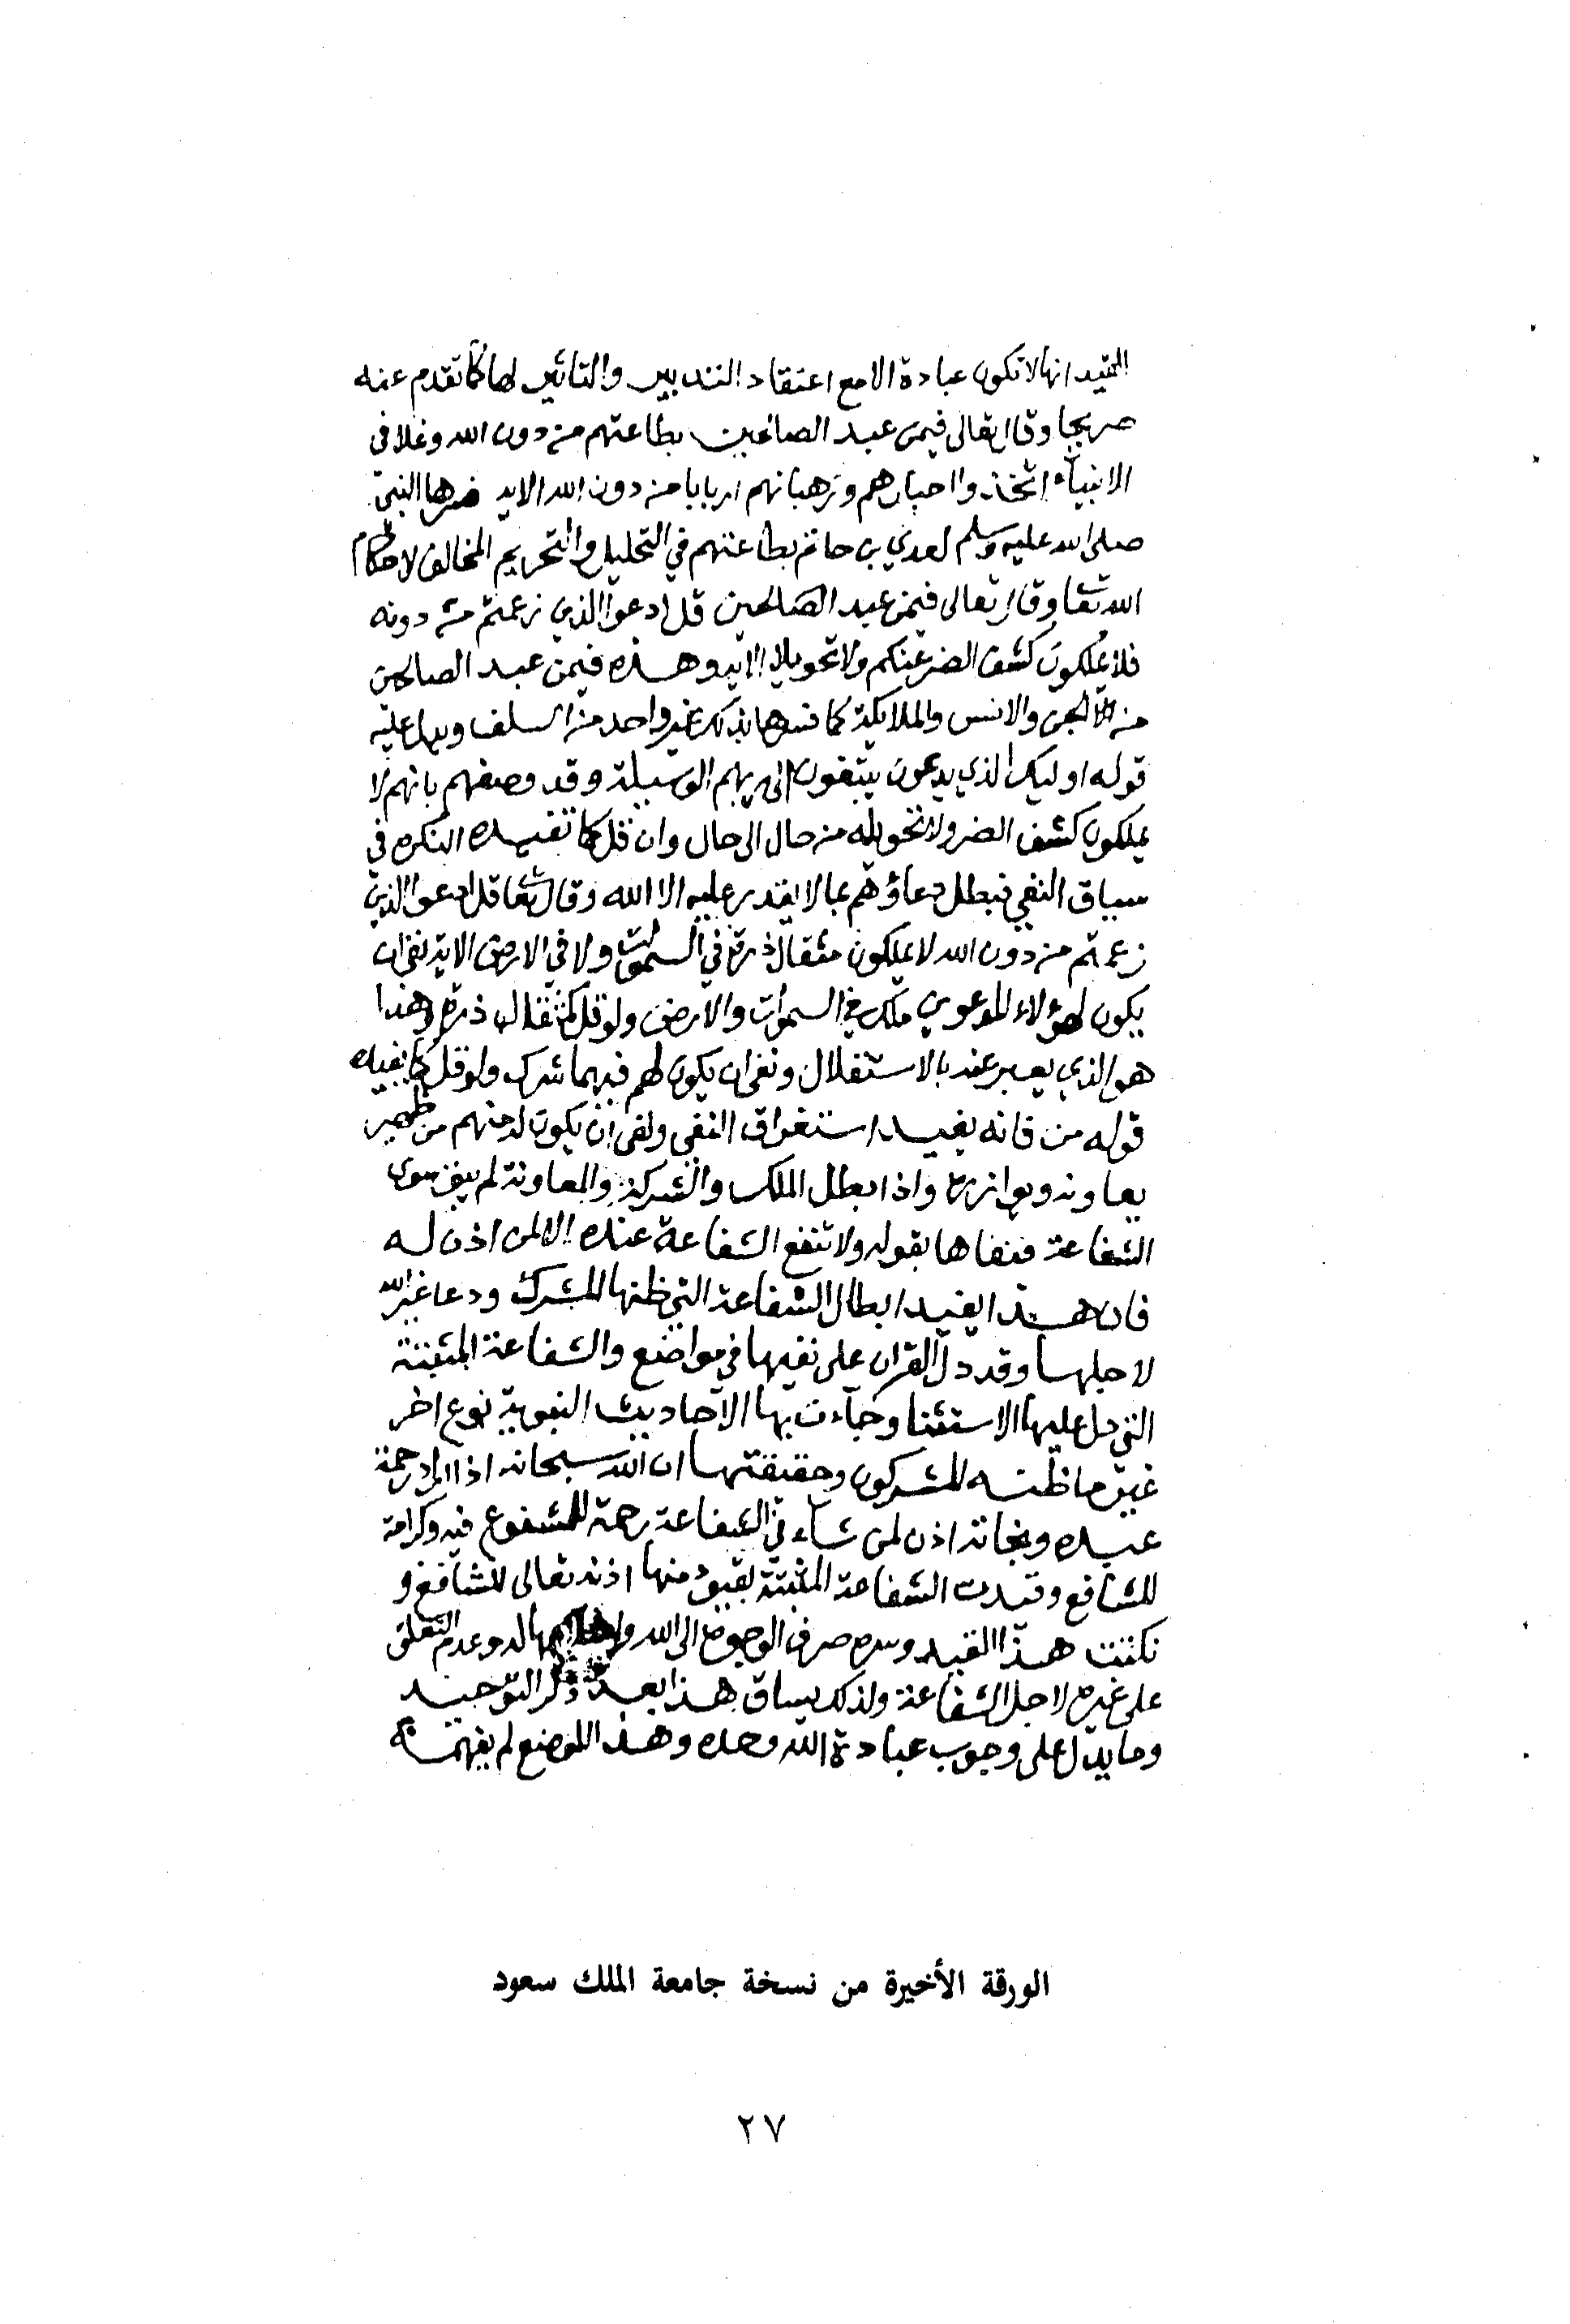 المقيد انها لا تكون عبادة الا مع اعتقاد التدبير والتاثير لها كما تقدم عنه
صريحا وقال تعالى فيمن عبد الصالحين بطاعتهم من دون الله وغلا في
الانبياء اتخذوا احبارهم ورهبانهم اربابا من دون الله الاية فسرها النبي
صلى الله عليه وسلم لعدي بن حاتم بطاعتهم في التحليل والتحريم المخالف لاحكام
الله تعا وقال تعالى فيمن عبد الصالحين قل ادعوا الذين زعمتم من دونه
فلا يملكون كشف الضر عنكم ولا تحويلا الاية وهذه فيمن عبد الصالحين
من الجن والانس والملايكة كما فسرها بذلك غير واحد من السلف ويدل عليه
قوله اوليك الذين يدعون يبتغون الى ربهم الوسيلة وقد وصفهم بانهم لا
يملكون كشف الضر ولا تحويله من حال الى حال وان قل كما تفيده النكره في
سياق النفي فبطل دعاؤهم بما لا يقدر عليه الا الله وقال تعا قل ادعوا الذين
زعمتم من دون الله لا يملكون مثقال ذرة في السموات ولا في الارض الاية نفى ان
يكون لهؤلاء المدعوين ملك في السموات والارض ولو قل كمثقال ذرة وهذا
هو الذي يعبر عنه بالاستقلال ونفى ان يكون لهم فيهما شرك ولو قل كما يفيده
قوله من فانه يفيد استغراق النفي ونفى ان يكون له منهم من ظهير
يعاونه ويوازره واذا بطل الملك والشركة والمعاونة لم يبق سوى
الشفاعة فنفاها بقوله ولا تنفع الشفاعة عنده الا لمن اذن له
فان هذا يفيد ابطال الشفاعة التي ظنها المشرك ودعا غير الله
لاجلها وقد دل القران على نفيها في مواضع والشفاعة المثبتة
التي دل عليها الاستثنا وجاءت بها الاحاديث النبوية نوع اخر
غير ما ظنه المشركون وحقيقتها ان الله سبحانه اذا اراد رحمة
عبده ونجاته اذن لمن شاء في الشفاعة رحمة للمشفوع فيه وكرامة
للشافع وقيدت الشفاعة المثبتة بقيود منها اذنه تعالى للشافع و
نكتت هذا القيد وسره صرف الوجوه الى الله له وعدم التعلق
على غيره لاجل الشفاعة ولذلك يساق هذا بعد ذكر التوحيد
وما يدل على وجوب عبادة الله وحده وهذا الموضع لم يفهمه
الورقة الأخيرة من نسخة جامعة الملك سعود
٢٧